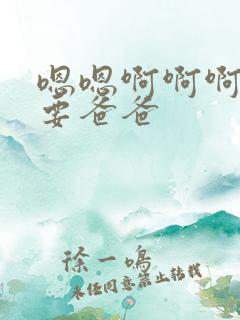 嗯嗯啊啊啊
要爸爸
徐一鸣
未经同意禁止转载